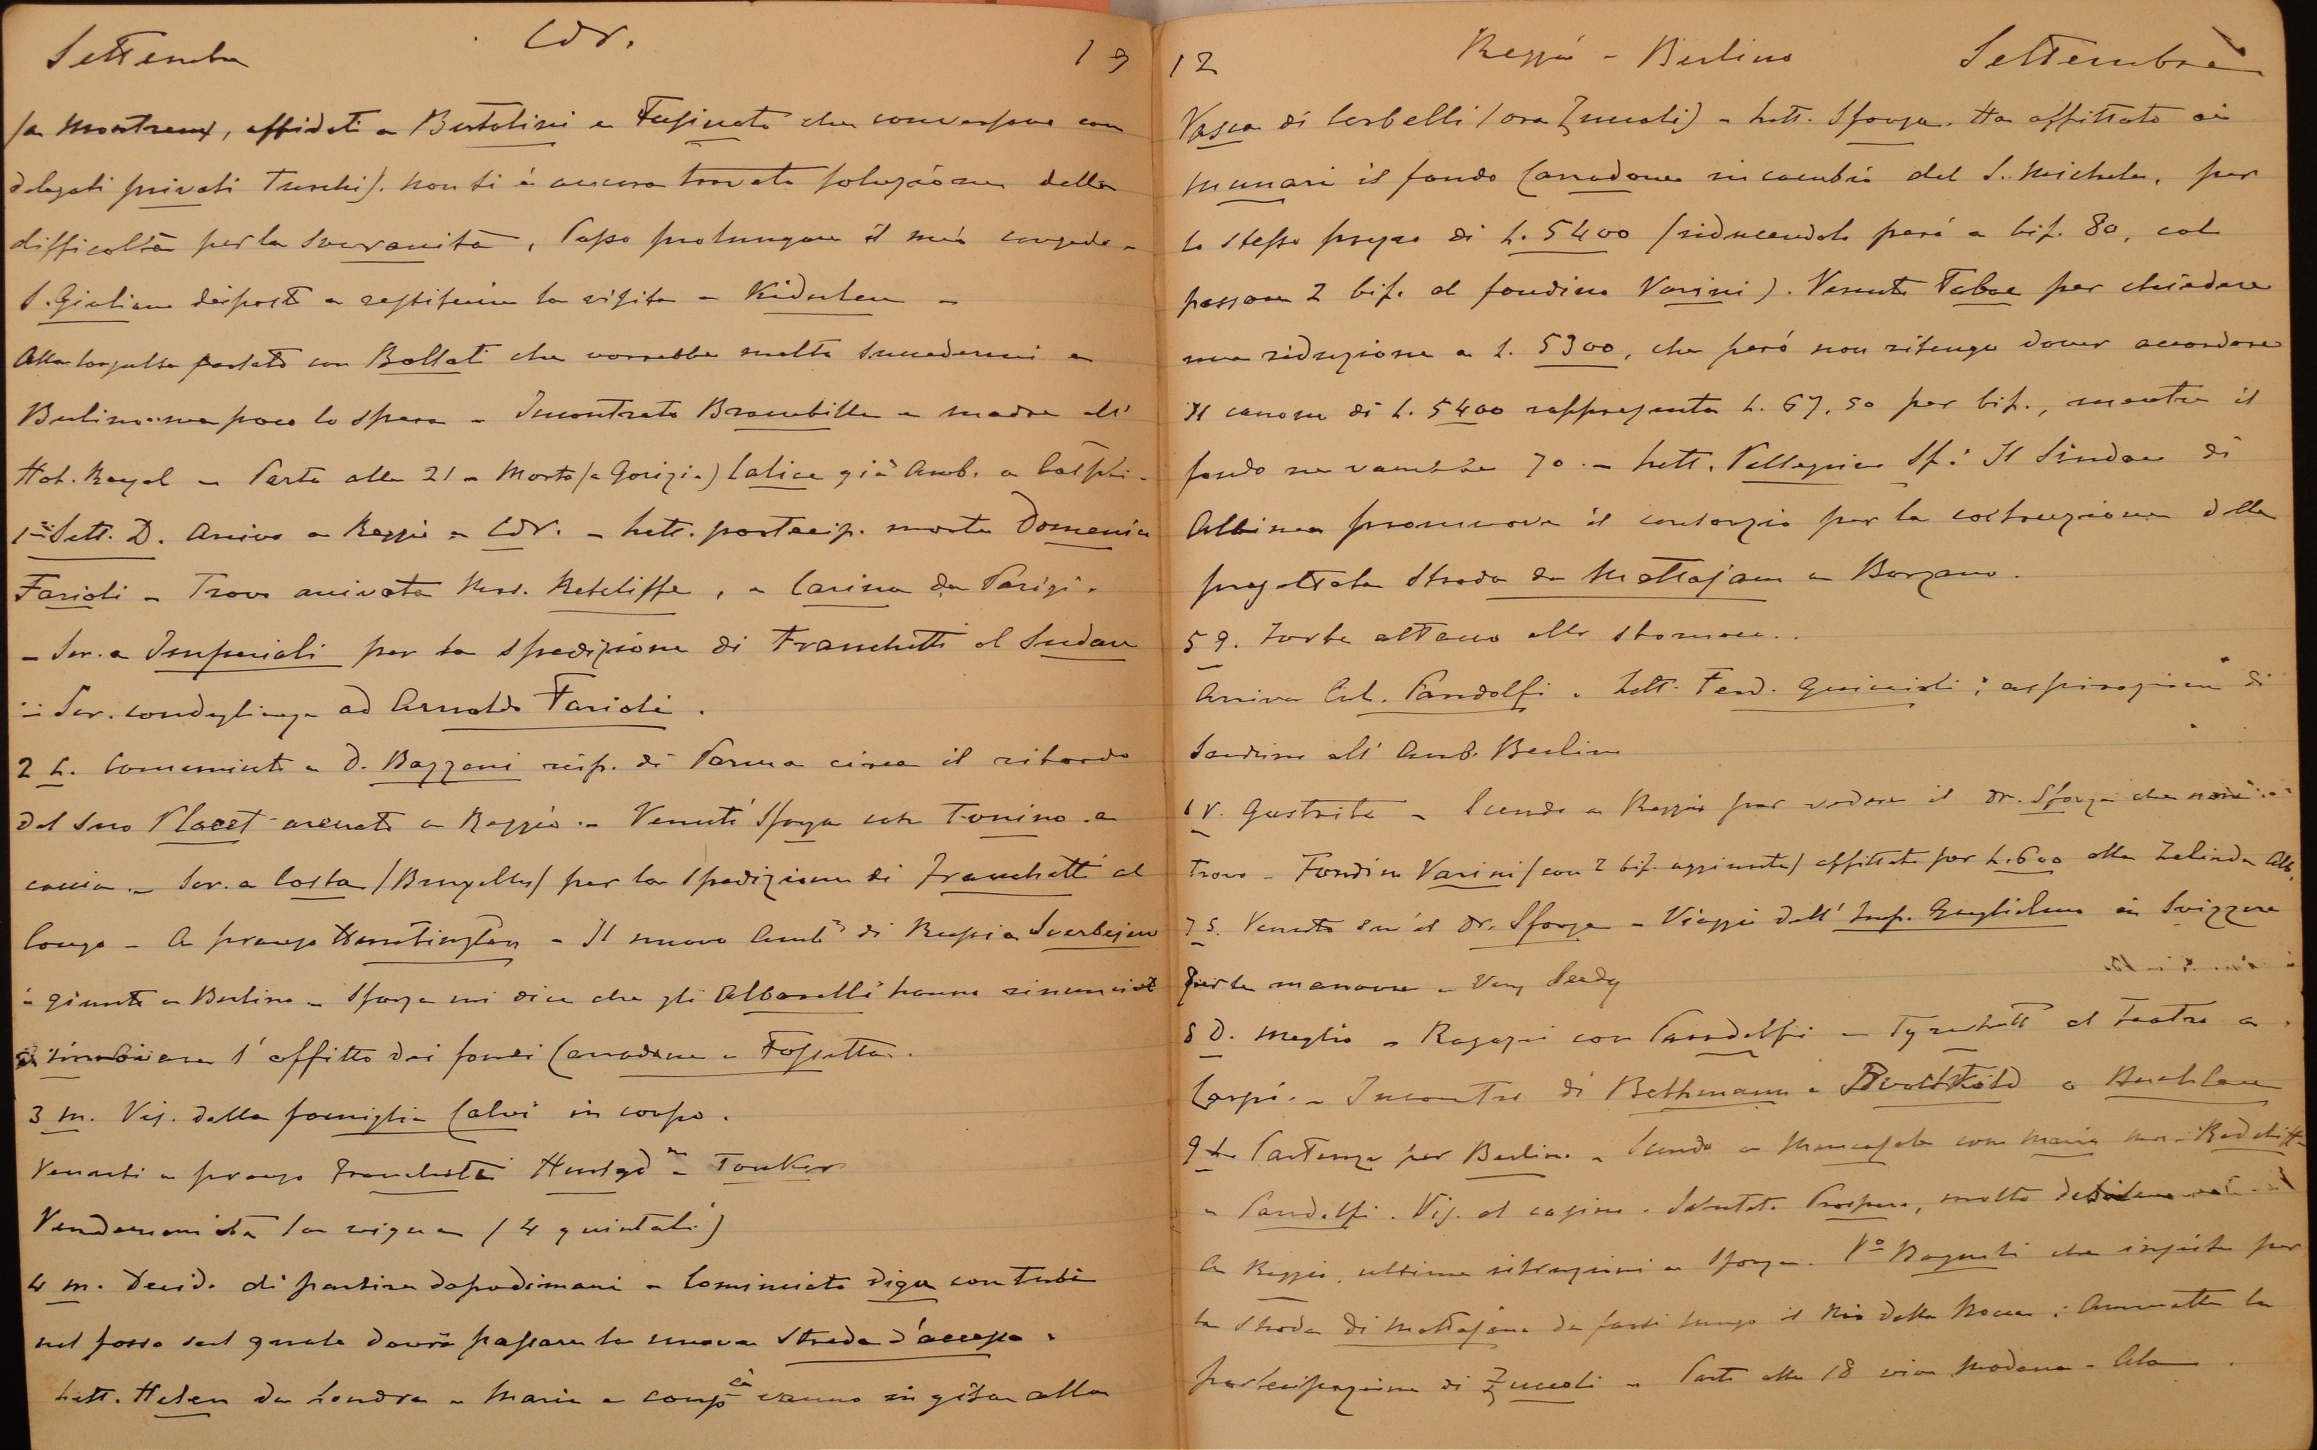 Settembre CdV. 19
(a Montreux, affidati a Bertolini e Fusinato che conversano con
delegati privati Turchi). Non si è ancora trovata soluzione della
difficoltà per la sovranità, Posso prolungare il mio congedo -
S. Giuliano disposto a restituire la visita a Kiderlen -
Alla Consulta parlato con Bollati che vorrebbe molto succedermi a
Berlino ma poco lo spera - Incontrato Brambilla e madre all'
Hot. Royal - Parto alle 21 - Morto (a Gorizia) Calice già Amb. a Costpli -
1 Sett. D. Arrivo a Reggio e CdV. - Lett. partecip. morte Domenico
Farioli - Trovo arrivata Mrs. Retcliffe, e Carina da Parigi.
- Scr. a Imperiali per la spedizione di Franchetti al Sudan
- Scr. condoglianze ad Arnoldo Farioli.
2 L. Comunicato a D. Bazzani risp. di Parma circa il ritardo
del suo Placet arenato a Reggio. - Venuti Sforza con Tonino a
caccia. - Scr. a Costa (Bruxelles) per la spedizione di Franchetti al
Congo - A pranzo Huntington - Il nuovo Amb.re di Russia Sverbejew
è giunto a Berlino - Sforza mi dice che gli Albarelli hanno rinunciato
l'affitto dei fondi Canadone e Fossetta.
3 M. Vis. della famiglia Calvi in corpo.
Venuti a pranzo Franchetti Huntgdn e Tonker
Vendemmiata la vigna (4 quintali)
4 M. Decido di partire dopodimani - Cominciata diga con tubi
nel fosso sul quale dovrà passare la nuova Strada d'accesso.
Lett. Helen da Londra - Maria e compia vanno in gita alla
12 Reggio - Berlino Settembre
Vasca di Corbelli (ora Zuccoli) - Lett. Sforza. Ha affittato ai
Munari il fondo Canadone in cambio del S. Michele, per
lo stesso prezzo di L. 5400 (riducendolo però a bif. 80, col
passare 2 bif. al fondino Varini). Venuto per chiedere
una riduzione a L. 5300, che però non ritengo dover accordare
Il canone di L. 5400 rappresenta L. 67,50 per bif., mentre il
fondo ne varrebbe 70. - Lett. Pellegrino Sp.: Il Sindaco di
Albinea promuove il consorzio per la costruzione della
progettata Strada da Mattajano a Borzano.
5 G. Forte attacco allo stomaco.
Arriva Pandolfi. Lett. Ferd. Guiccioli: aspirazioni di
all' Amb. Berlino
6 V. Gastrite - Scendo a Reggio per vedere il Dr. Sforza che non
trovo - Fondino Varini (con 2 bif. aggiunte) affittato per L. 600 alla Zelinda Alb.
7 S. Venuto su il Dr. Sforza - Viaggio dell'Imp. Guglielmo in Svizzera
per le manovre - Very Seedy
8 D. Meglio - Ragazzi con Pandolfi e Tyrwhitt al Teatro a
Carpi. - Incontro di Bethmann e Berchtold a Buchlau
9 L. Partenza per Berlino. - Scendo a Mancasale con Maria Mrs. Radcliffe
e Pandolfi. Vis. al casino. Salutato Prospero, molto
A Reggio, ultime istruzioni a Sforza. Vo Bagnoli che insiste per
la Strada di Mattajano da farsi lungo il Rio della Rocca: Ammette la
partecipazione di Zuccoli - Parto alle 18 via Modena - Ala.